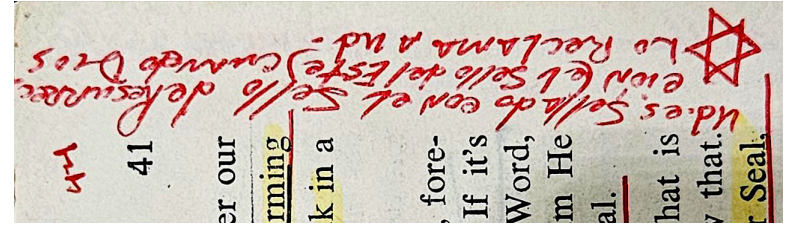 Ud. es Sellado con el Sello de Resurrec
cion (el Sello del Este) cuando Dios
Lo Reclama a ud.
41
er our
rming
k in a
, fore-
If it's
Word,
m He
al.
hat is
y that.
r Seal,